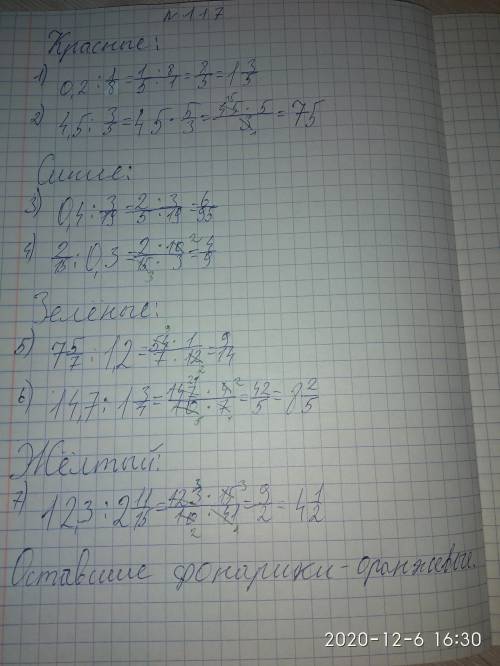 № 117
Красные:
1) 0,2 : 1/8 = 1/5 · 8/1 = 8/5 = 1 3/5
2) 4,5 : 3/5 = 45 · 5/3 = 45 · 5/3 = 75
Синие:
3) 0,4 : 3/19 = 2/5 · 3/19 = 6/95
4) 2/15 : 0,3 = 2/15 · 10/3 = 4/9
Зеленые:
5) 7 5/7 : 1,2 = 54/7 · 1/12 = 9/14
6) 14,7 : 1 3/4 = 147/10 · 4/7 = 42/5 = 8 2/5
Жёлтый:
7) 12,3 : 2 11/15 = 123/10 · 15/41 = 9/2 = 4 1/2
Оставшие фонарики - оранжевые.
2020-12-6 16:30